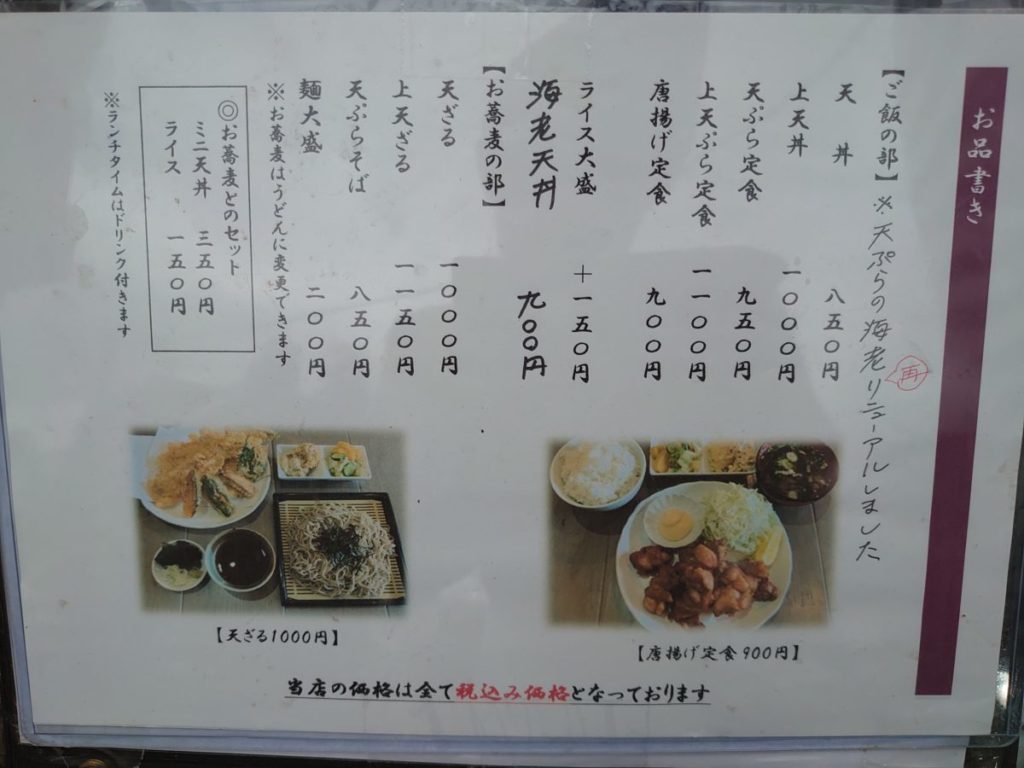 お品書き
【ご飯の部】※天ぷらの海老リニューアルしました
再
天丼 八五〇円
上天丼 一〇〇〇円
天ぷら定食 九五〇円
上天ぷら定食 一一〇〇円
唐揚げ定食 九〇〇円
ライス大盛 +一五〇円
海老天丼 九〇〇円
【お蕎麦の部】
天ざる 一〇〇〇円
上天ざる 一一五〇円
天ぷらそば 八五〇円
麺大盛 二〇〇円
※お蕎麦はうどんに変更できます
◎お蕎麦とのセット
ミニ天丼 三五〇円
ライス 一五〇円
※ランチタイムはドリンク付きます
【天ざる1000円】
【唐揚げ定食 900円】
当店の価格は全て税込み価格となっております